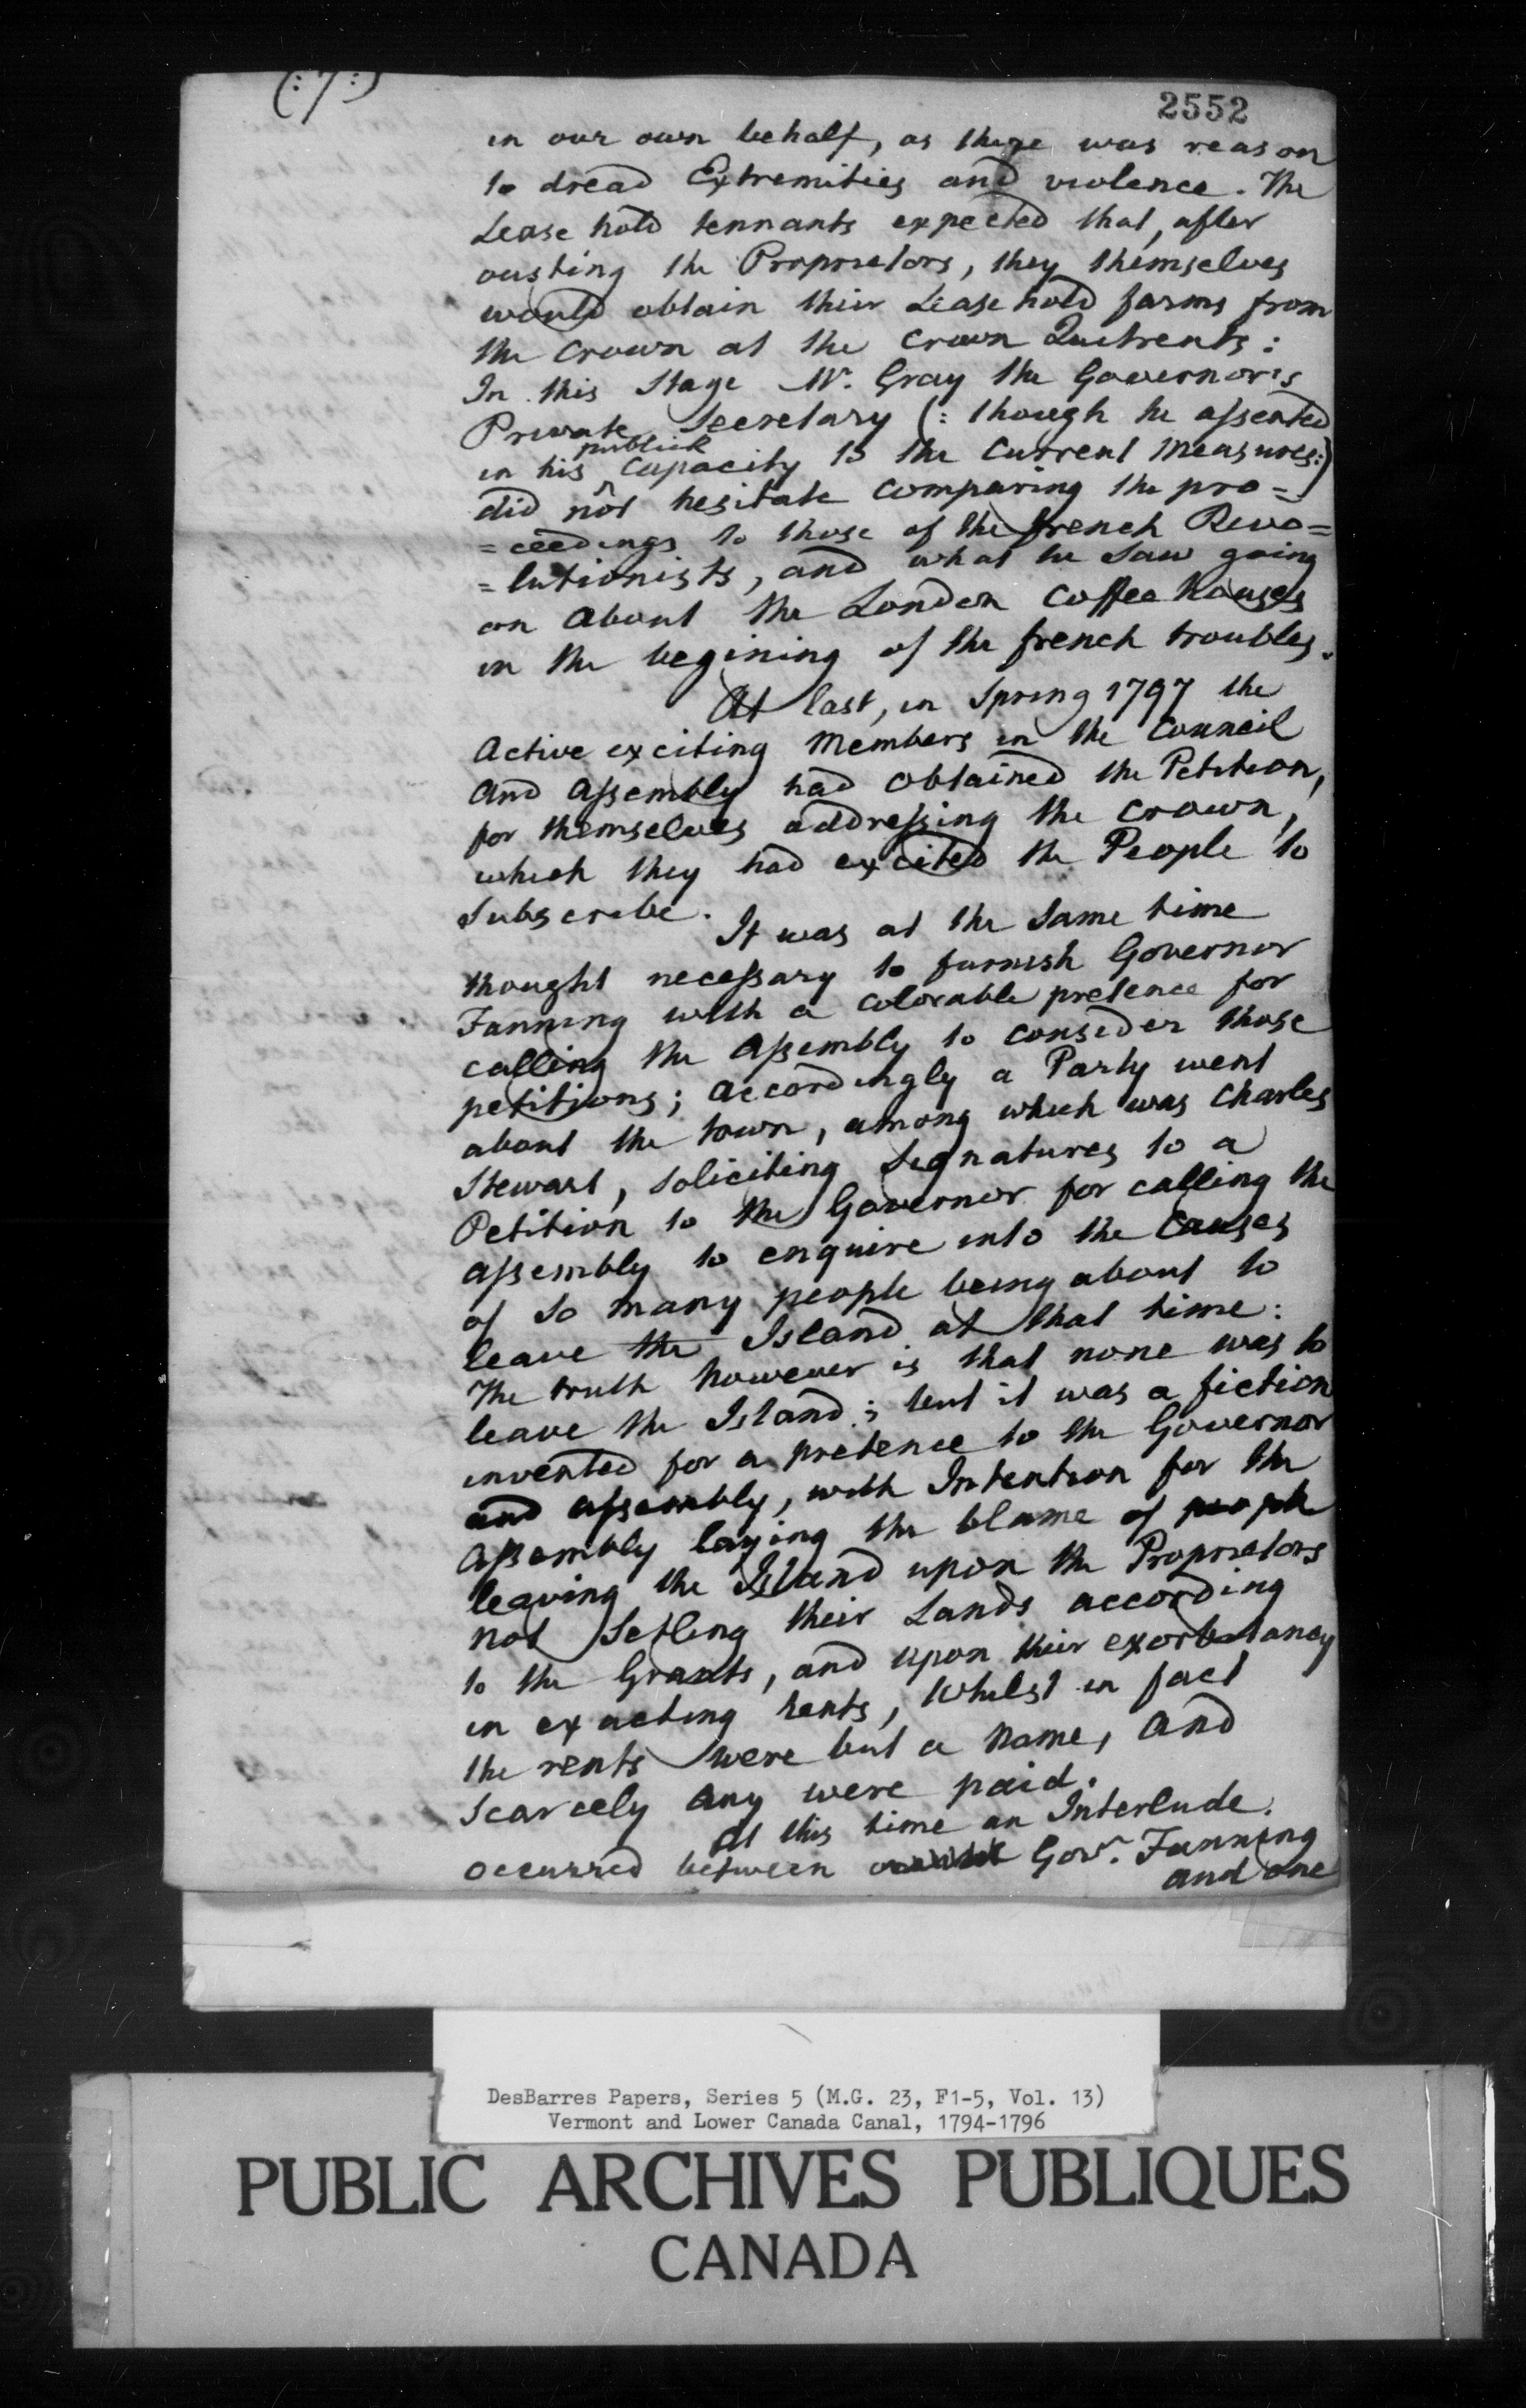 (:7:)
2552
in our own behalf, as there was reason
to dread Extremities and violence. The
Lease hold tennants expected that, after
ousting the Proprietors, they themselves
would obtain their Lease hold farms from
the Crown at the Crown Quitrents:
In this Stage Mr. Gray the Governor's
Private Secretary (: though he assented
in his publick Capacity to the Current Measures:)
did not hesitate Comparing the pro=
=ceedings to those of the french Revo=
=lutionists, and what he saw going
on about the London Coffee houses
in the begining of the french troubles.
At last, in Spring 1797 the
Active exciting Members in the Council
and Assembly had obtained the Petition,
for themselves addressing the Crown,
which they had excited the People to
Subscribe.
It was at the same time
thought necessary to furnish Governor
Fanning with a Colorable pretence for
calling the Assembly to consider those
petitions; accordingly a Party went
about the town, among which was Charles
Stewart, soliciting Signatures to a
Petition to the Governor for calling the
Assembly to enquire into the Causes
of so many people being about to
leave the Island at that time:
The truth however is that none was to
leave the Island; but it was a fiction
invented for a pretence to the Governor
and Assembly, with Intention for the
Assembly laying the blame of people
leaving the Island upon the Proprietors
not Setling their Lands according
to the Grants, and upon their exorbitancy
in exacting rents, whilst in fact
the rents were but a Name, and
Scarcely any were paid.
At this time an Interlude.
occurred between Govr. Fanning
and one
DesBarres Papers, Series 5 (M.G. 23, F1-5, Vol. 13)
Vermont and Lower Canada Canal, 1794-1796
PUBLIC ARCHIVES PUBLIQUES
CANADA